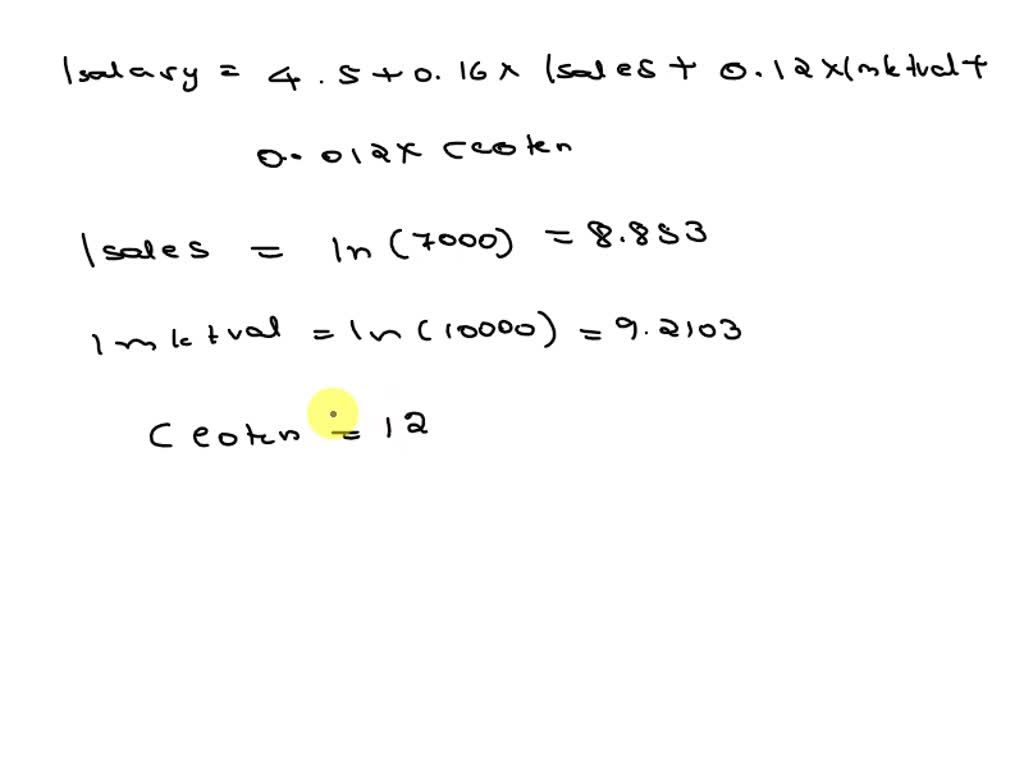 lsalary = 4.5+0.16x lsales + 0.12xlmktval+
0.012x ceoten
lsales = ln(7000) = 8.853
lmktval = ln(10000) = 9.2103
Ceoten = 12